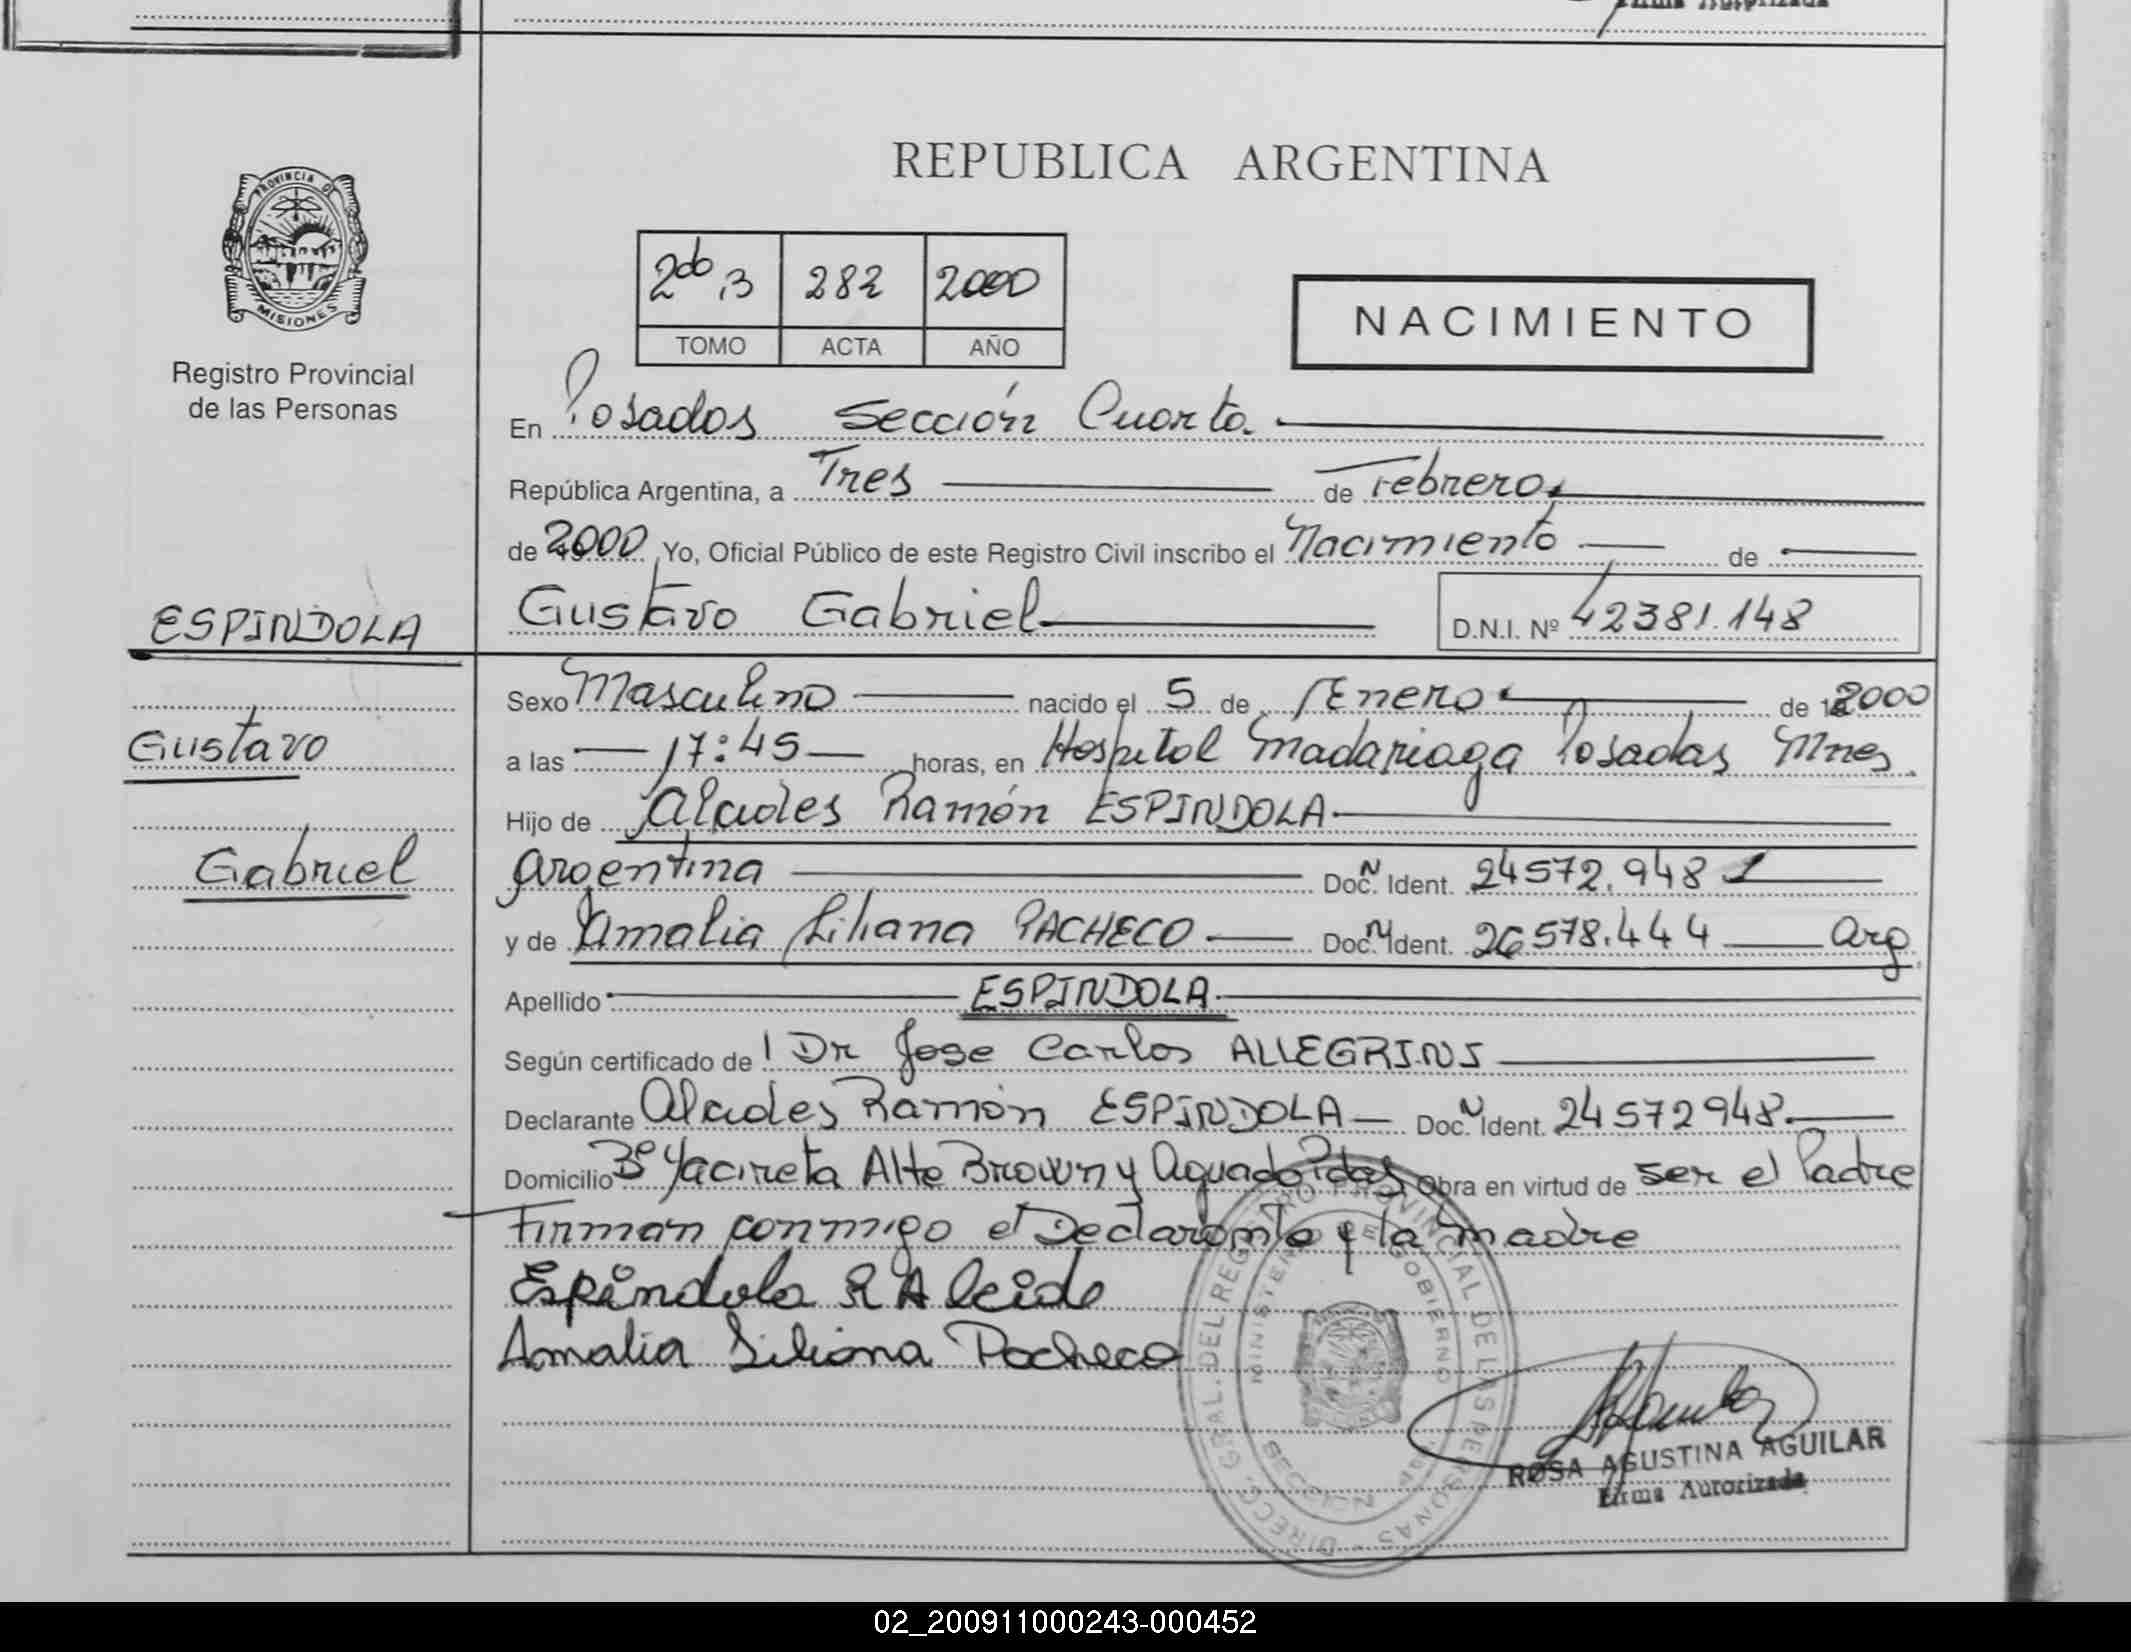 Firma Autorizada
PROVINCIA DE
MISIONES
Registro Provincial
de las Personas
REPUBLICA ARGENTINA
2do 3 282 2000
TOMO ACTA AÑO
NACIMIENTO
En Posadas Sección Cuarta
República Argentina, a Tres de Febrero
de 2000 Yo, Oficial Público de este Registro Civil inscribo el Nacimiento de
ESPINDOLA
Gustavo Gabriel D.N.I. Nº 42381.148
Sexo Masculino nacido el 5 de Enero de 2000
Gustavo
a las 17:45 horas, en Hospital Madariaga Posadas Mnes.
Hijo de Alcides Ramón ESPINDOLA
Gabriel
Argentina Doc. N Ident. 24572.948
y de Amalia Liliana PACHECO Doc. N Ident. 26578.444 Arg.
Apellido ESPINDOLA
Según certificado de Dr Jose Carlos ALLEGRINS
Declarante Alcides Ramón ESPINDOLA Doc. N Ident. 24572948
Domicilio Bº Yacireta Alte Brown y Aguado Pdas Obra en virtud de ser el Padre
Firman conmigo el Declarante y la madre
Espindola R Alcide
Amalia Liliana Pacheco
DIRECC. GRAL. DEL REGISTRO PROVINCIAL DE LAS PERSONAS
MINISTERIO DE GOBIERNO
SECCION
ROSA AGUSTINA AGUILAR
Firma Autorizada
02_200911000243-000452